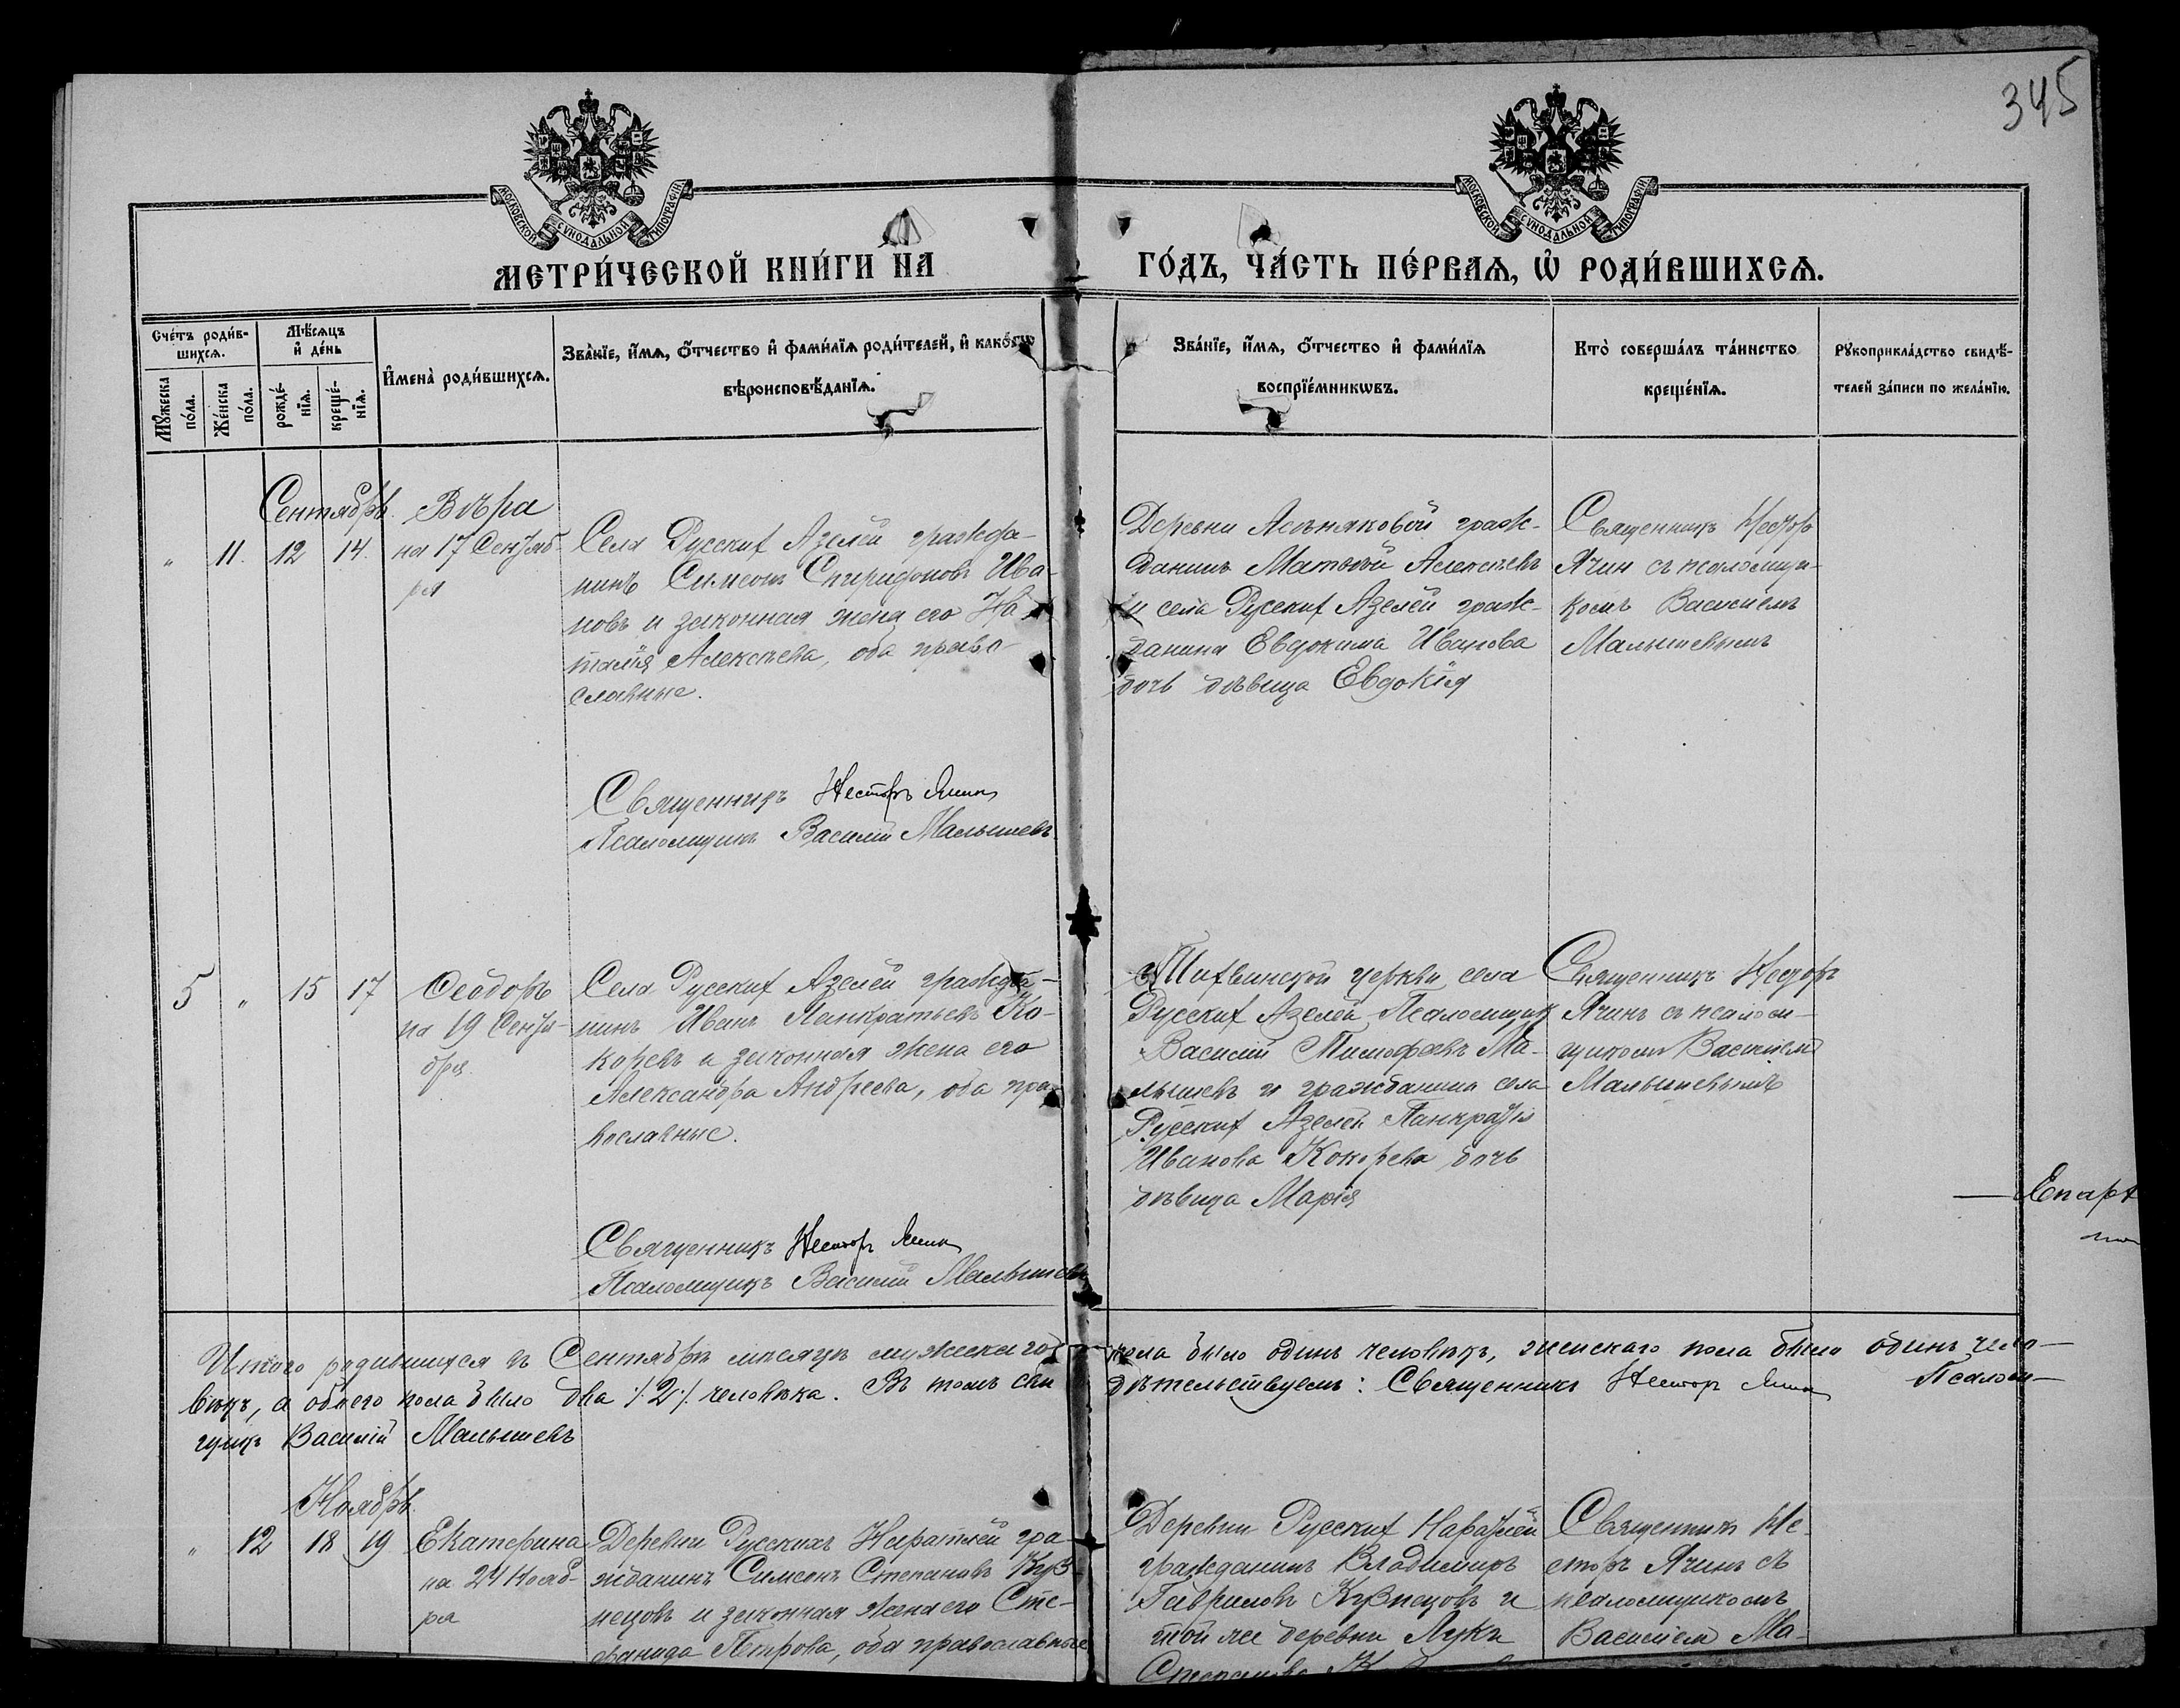 345
МОСКОВСКОЙ СѴНОДАЛЬНОЙ ТИПОГРАФІИ
МОСКОВСКОЙ СѴНОДАЛЬНОЙ ТИПОГРАФІИ
МЕТРИ́ЧЕСКОЙ КНИ́ГИ НА
ГО́ДЪ, ЧА́СТЬ ПЕ́РВАѦ, Ѡ҆ РОДИ́ВШИХСѦ.
Сче́тъ роди́в-
шихсѧ.
Мѣ́сѧцъ
и҆ де́нь
Мꙋ́жеска
по́ла.
Же́нска
по́ла.
рожде́-
нїѧ.
креще́-
нїѧ.
И҆мена̀ роди́вшихсѧ.
Зва́нїе, и҆́мѧ, ѻ҆́тчество и҆ фами́лїѧ роди́телей, и҆ како́гѡ
вѣроисповѣ́данїѧ.
Зва́нїе, и҆́мѧ, ѻ҆́тчество и҆ фами́лїѧ
воспрїе́мникѡвъ.
Кто̀ соверша́лъ та́инство
креще́нїѧ.
Рꙋкоприкла́дство свидѣ́-
телей за́писи по жела́нїю.
Сентябрь
" 11. 12 14.
Вѣра
на 17 Сентяб-
ря
Села Русских Азелей гражда-
нинъ Симеонъ Спиридоновъ Ива-
новъ и законная жена его На-
талія Алексѣева, оба право-
славные.
Священникъ Несторъ Ячинъ
Псаломщикъ Василій Малышевъ.
Деревни граж-
данинъ Матвей Алексѣевъ
и села Русских Азелей граж-
данина Евдокима Иванова
дочь дѣвица Евдокія
Священникъ Несторъ
Ячин съ псаломщи-
комъ Василіемъ
Малышевымъ
5 " 15 17
Ѳеодоръ
на 19 Сентя-
бря.
Села Русских Азелей гражда-
нинъ Иванъ Панкратьевъ Ко-
коревъ и законная жена его
Александра Андреева, оба пра-
вославные.
Священникъ Несторъ Ячинъ
Псаломщикъ Василій Малышевъ
Тихвинской церкви села
Русских Азелей Псаломщикъ
Василій Тимофеевъ Ма-
лышевъ и гражданина села
Русских Азелей Панкратія
Иванова Кокорева дочь
дѣвица Марія
Священникъ Несторъ
Ячинъ съ псалом-
щикомъ Василіемъ
Малышевымъ
— Епарх
Итого родившихся въ Сентябрѣ мѣсяцѣ мужескаго пола было одинъ человѣкъ, женскаго пола было одинъ чело-
вѣкъ, а обоего пола было два /:2:/ человѣка. Въ томъ свидѣтельствуемъ: Священникъ Несторъ Ячинъ Псалом-
щикъ Василій Малышевъ
Ноябрь
" 12 18 19
Екатерина
на 24 Нояб-
ря
Деревни Русскихъ Наратлей гра-
жданинъ Симеонъ Степановъ Куз-
нецовъ и законная жена его Сте-
фанида Петрова, оба православные
Деревни Русских Наратлей
гражданинъ Владимиръ
Гавриловъ Кузнецовъ и
той же деревни Луки
Степанова
Священникъ Не-
сторъ Ячинъ съ
псаломщикомъ
Василіем Ма-